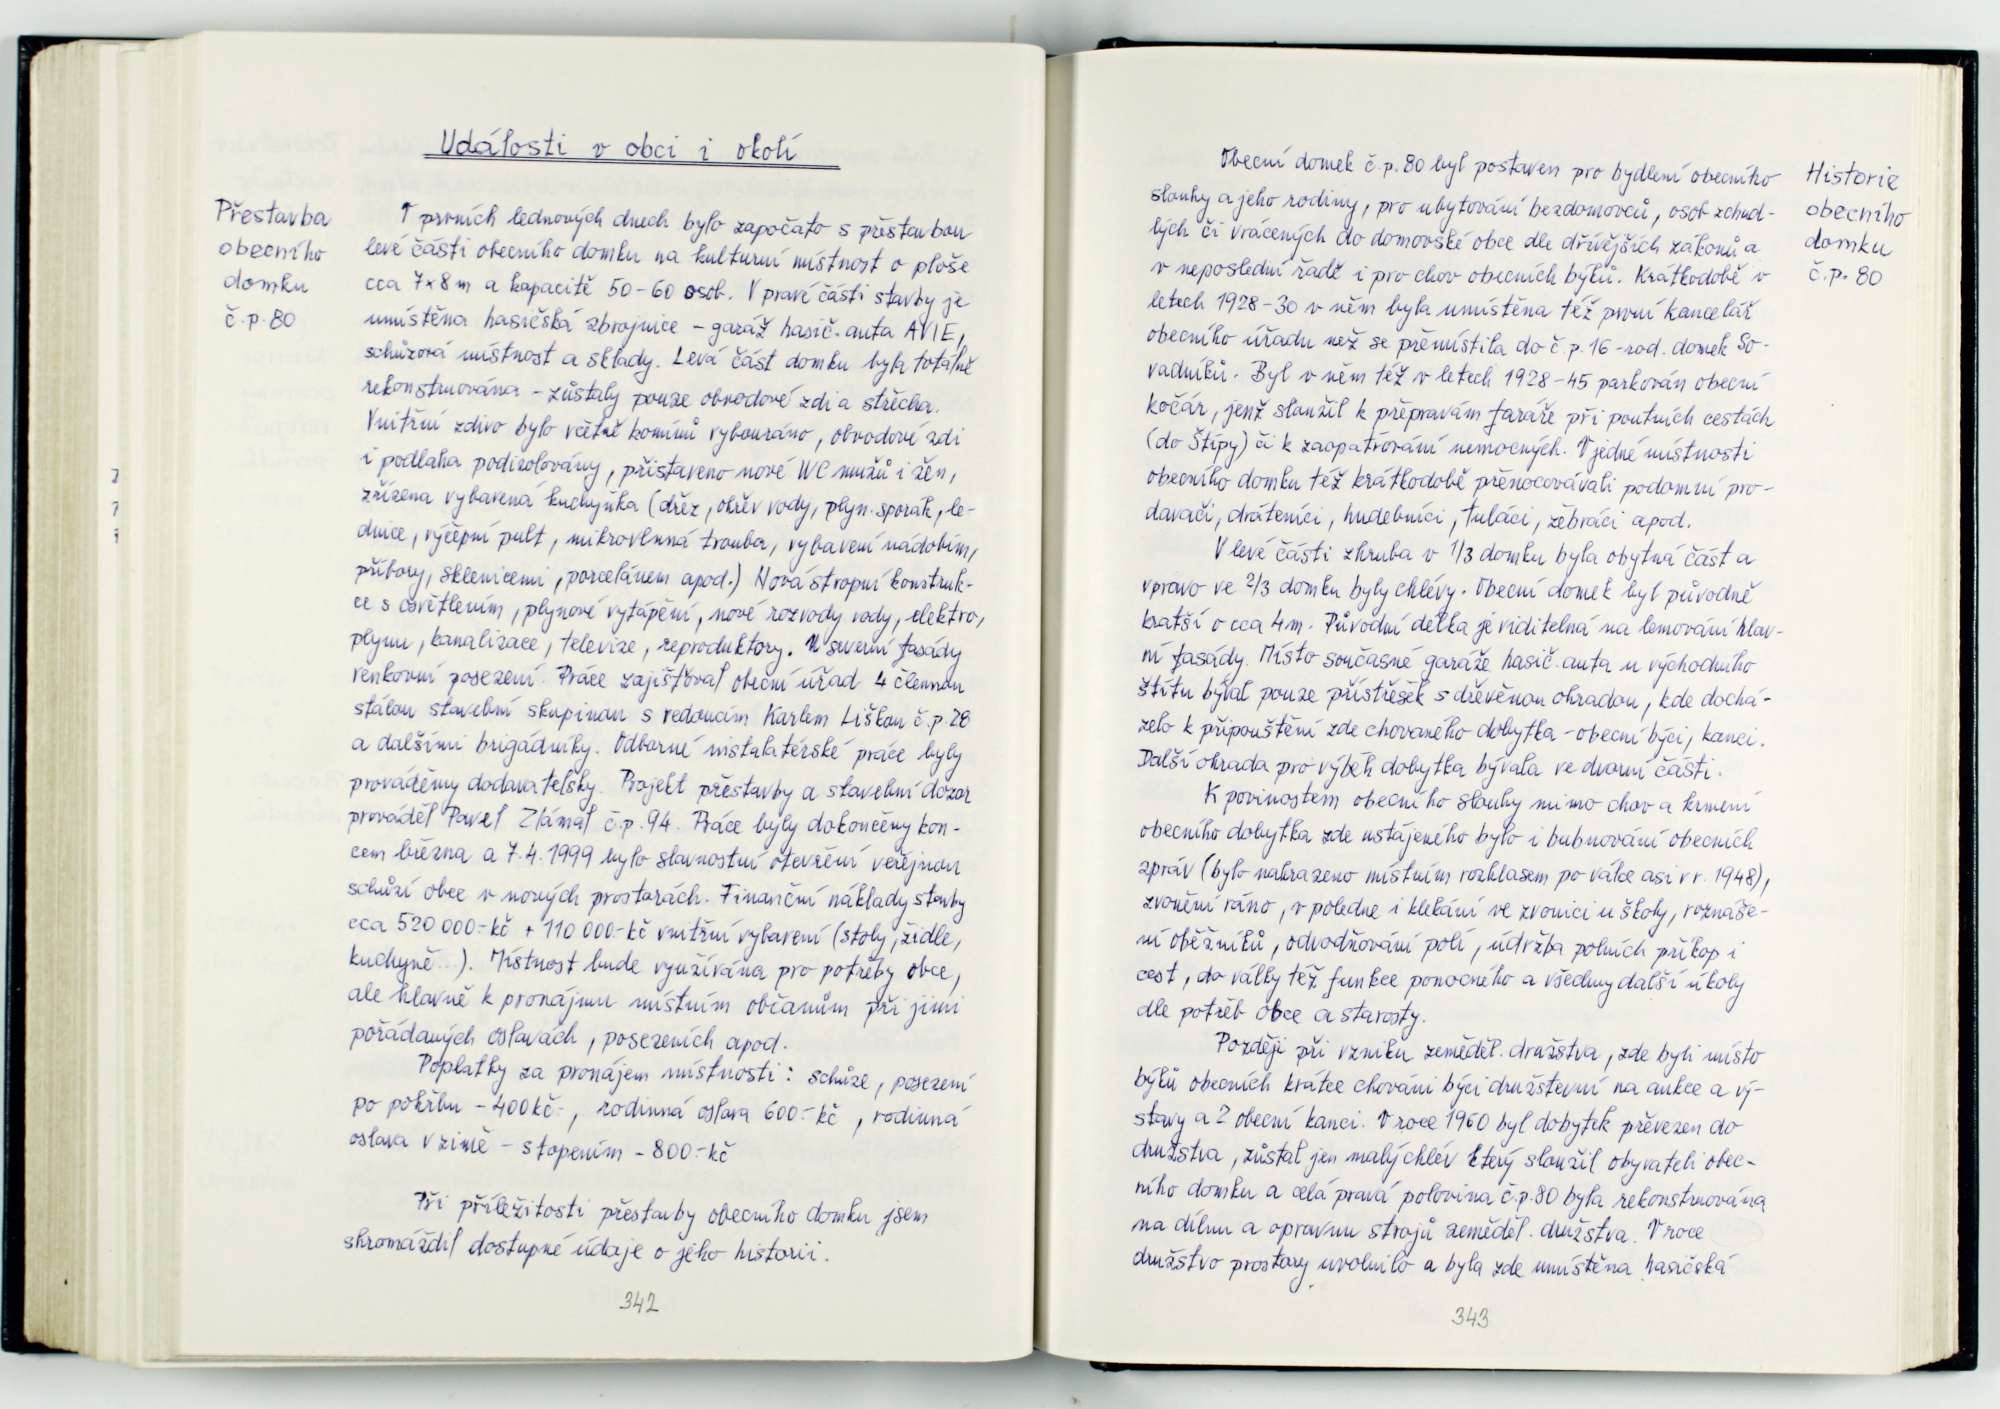 Události v obci i okolí
Přestavba
obecního
domku
č.p. 80
V prvních lednových dnech bylo započato s přestavbou
levé části obecního domku na kulturní místnost o ploše
cca 7x8 m a kapacitě 50-60 osob. V pravé části stavby je
umístěna hasičská zbrojnice - garáž hasič. auta AVIE,
schůzová místnost a sklady. Levá část domku byla totálně
rekonstruována - zůstaly pouze obvodové zdi a střecha.
Vnitřní zdivo bylo včetně komínů vybouráno, obvodové zdi
i podlaha podizolovány, přistaveno nové WC mužů i žen,
zřízena vybavená kuchyňka (dřez, ohřev vody, plyn. sporák, le-
dnice, výčepní pult, mikrovlnná trouba, vybavení nádobím,
příbory, sklenicemi, porcelánem apod.) Nová stropní konstruk-
ce s osvětlením, plynové vytápění, nové rozvody vody, elektro,
plynu, kanalizace, televize, reproduktory. U severní fasády
venkovní posezení. Práce zajišťoval obecní úřad 4 člennou
stálou stavební skupinou s vedoucím Karlem Liškou č.p. 28
a dalšími brigádníky. Odborné instalatérské práce byly
prováděny dodavatelsky. Projekt přestavby a stavební dozor
prováděl Pavel Zlámal č.p. 94. Práce byly dokončeny kon-
cem března a 7.4.1999 bylo slavnostní otevření veřejnou
schůzí obce v nových prostorách. Finanční náklady stavby
cca 520 000.- kč + 110 000.- kč vnitřní vybavení (stoly, židle,
kuchyně...). Místnost bude využívána pro potřeby obce,
ale hlavně k pronájmu místním občanům při jimi
pořádaných oslavách, posezeních apod.
Poplatky za pronájem místnosti: schůze, posezení
po pohřbu - 400 kč.-, rodinná oslava 600.- kč, rodinná
oslava v zimě - s topením - 800.- kč
Při příležitosti přestavby obecního domku jsem
shromáždil dostupné údaje o jeho historii.
342
Historie
obecního
domku
č.p. 80
Obecní domek č.p. 80 byl postaven pro bydlení obecního
slouhy a jeho rodiny, pro ubytování bezdomovců, osob zchud-
lých či vrácených do domovské obce dle dřívějších zákonů a
v neposlední řadě i pro chov obecních býků. Krátkodobě v
letech 1928-30 v něm byla umístěna též první kancelář
obecního úřadu než se přemístila do č.p. 16 - rod. domek So-
vadníků. Byl v něm též v letech 1928-45 parkován obecní
kočár, jenž sloužil k přepravám faráře při poutních cestách
(do Štípy) či k zaopatřování nemocných. V jedné místnosti
obecního domku též krátkodobě přenocovávali podomní pro-
davači, dráteníci, hudebníci, tuláci, žebráci apod.
V levé části zhruba v 1/3 domku byla obytná část a
vpravo ve 2/3 domku byly chlévy. Obecní domek byl původně
kratší o cca 4 m. Původní délka je viditelná na lemování hlav-
ní fasády. Místo současné garáže hasič. auta u východního
štítu býval pouze přístřešek s dřevěnou ohradou, kde dochá-
zelo k připouštění zde chovaného dobytka - obecní býci, kanci.
Další ohrada pro výběh dobytka bývala ve dvorní části.
K povinostem obecního slouhy mimo chov a krmení
obecního dobytka zde ustájeného bylo i bubnování obecních
zpráv (bylo nahrazeno místním rozhlasem po válce asi v r. 1948),
zvonění ráno, v poledne i klekání ve zvonici u školy, roznáše-
ní oběžníků, odvodňování polí, údržba polních příkop i
cest, do války též funkce ponocného a všechny další úkoly
dle potřeb obce a starosty.
Později při vzniku zeměděl. družstva, zde byli místo
býků obecních krátce chováni býci družstevní na aukce a vý-
stavy a 2 obecní kanci. V roce 1960 byl dobytek převezen do
družstva, zůstal jen malý chlév který sloužil obyvateli obec-
ního domku a celá pravá polovina č.p. 80 byla rekonstruována
na dílnu a opravnu strojů zeměděl. družstva. V roce
družstvo prostory uvolnilo a byla zde umístěna hasičská
343